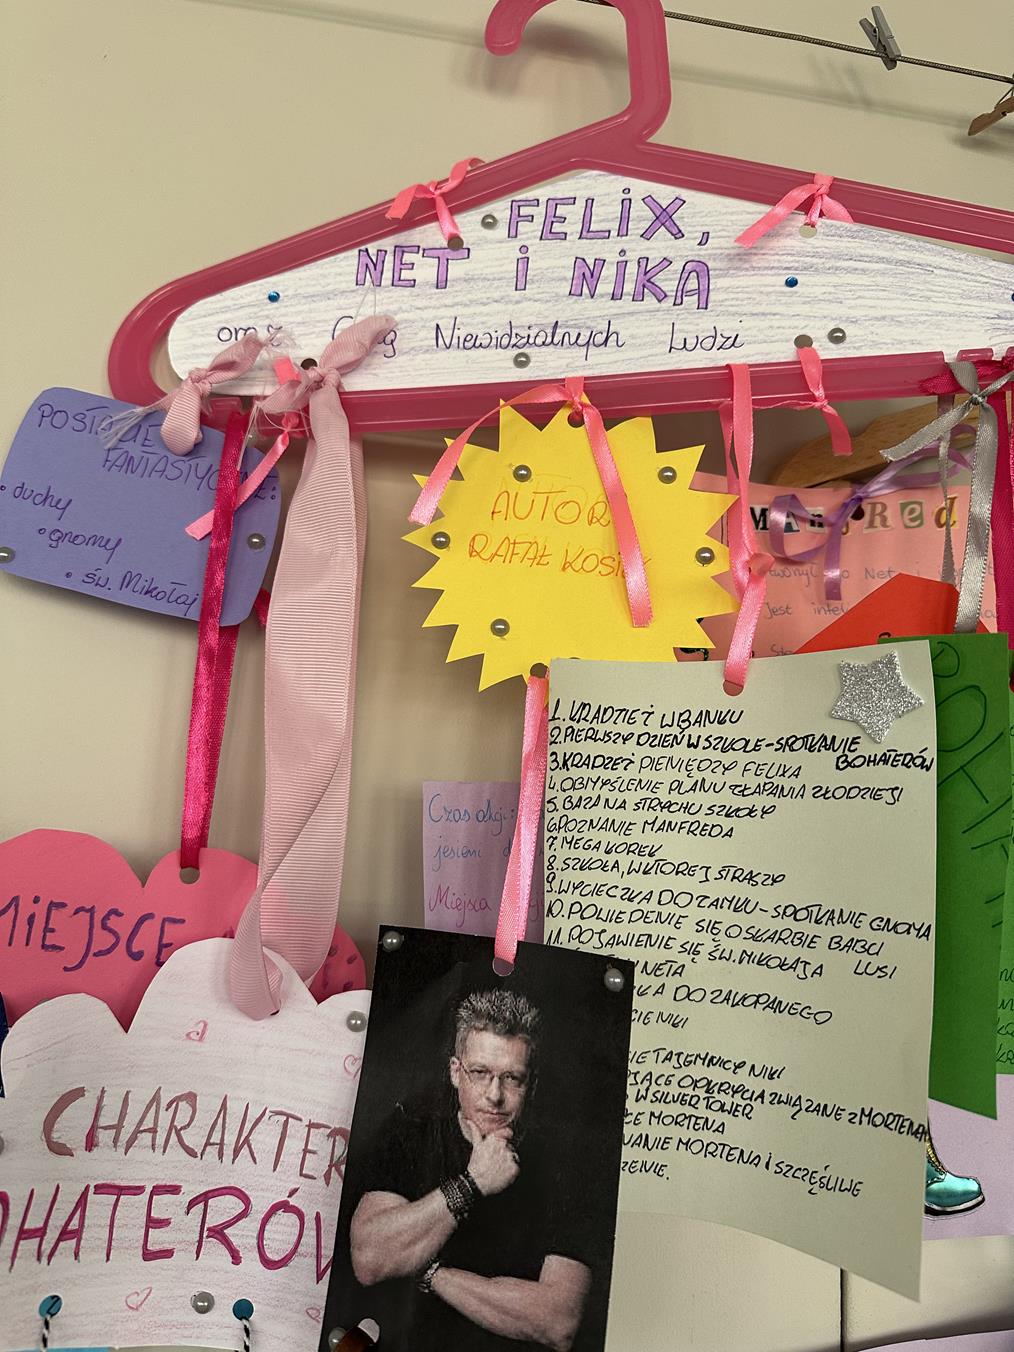 FELIX,
NET i NIKA
oraz Gang Niewidzialnych Ludzi
POSTACIE
FANTASTYCZNE:
• duchy
• gnomy
• św. Mikołaj
AUTOR
RAFAŁ KOSIK
MANfRed
Net i
Jest
1. KRADZIEŻ W BANKU
2. PIERWSZY DZIEŃ W SZKOLE - SPOTKANIE
BOHATERÓW
3. KRADZIEŻ PIENIĘDZY FELIXA
4. OBMYŚLENIE PLANU ZŁAPANIA ZŁODZIEJI
5. BAZA NA STRYCHU SZKOŁY
6. POZNANIE MANFREDA
7. MEGA KOREK
8. SZKOŁA, W KTÓREJ STRASZY
9. WYCIECZKA DO ZAMKU - SPOTKANIE GNOMA
10. POWIEDZENIE SIĘ O SKARBIE BABCI
LUSI
11. POJAWIENIE SIĘ ŚW. MIKOŁAJA
NETA
KA DO ZAKOPANEGO
CIE NIKI
IE TAJEMNICY NIKI
JĄCE ODKRYCIA ZWIĄZANE Z MORTENEM
W SILVER TOWER
CE MORTENA
WANIE MORTENA I SZCZĘŚLIWE
ZENIE.
Czas akcji:
jesieni
Miejsca
MIEJSCE
CHARAKTER
OHATERÓW